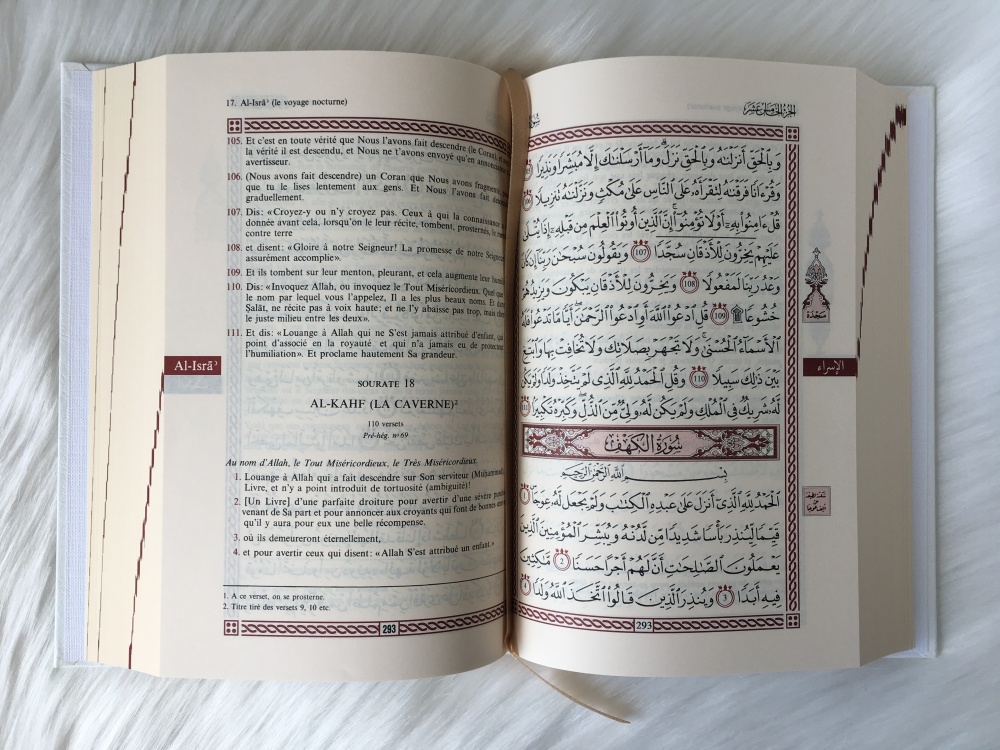 17. Al-Isrâʾ (le voyage nocturne)
105. Et c'est en toute vérité que Nous l'avons fait descendre (le Coran), et
la vérité il est descendu, et Nous ne t'avons envoyé qu'en annonciateur
avertisseur.
106. (Nous avons fait descendre) un Coran que Nous avons fragmenté,
que tu le lises lentement aux gens. Et Nous l'avons fait
graduellement.
107. Dis: «Croyez-y ou n'y croyez pas. Ceux à qui la connaissance
donnée avant cela, lorsqu'on le leur récite, tombent, prosternés, le
contre terre
108. et disent: «Gloire à notre Seigneur! La promesse de notre Seigneur
assurément accomplie».
109. Et ils tombent sur leur menton, pleurant, et cela augmente leur
110. Dis: «Invoquez Allah, ou invoquez le Tout Miséricordieux. Quel que
le nom par lequel vous l'appelez, Il a les plus beaux noms. Et dans
Ṣalāt, ne récite pas à voix haute; et ne l'y abaisse pas trop, mais
le juste milieu entre les deux».
111. Et dis: «Louange à Allah qui ne S'est jamais attribué d'enfant, qui
point d'associé en la royauté et qui n'a jamais eu de protecteur
l'humiliation». Et proclame hautement Sa grandeur.
Al-Isrāʾ
SOURATE 18
AL-KAHF (LA CAVERNE)²
110 versets
Pré-hég. n° 69
Au nom d'Allah, le Tout Miséricordieux, le Très Miséricordieux.
1. Louange à Allah qui a fait descendre sur Son serviteur (Muḥammad)
Livre, et n'y a point introduit de tortuosité (ambiguïté)!
2. [Un Livre] d'une parfaite droiture pour avertir d'une sévère
venant de Sa part et pour annoncer aux croyants qui font de bonnes
qu'il y aura pour eux une belle récompense.
3. où ils demeureront éternellement,
4. et pour avertir ceux qui disent: «Allah S'est attribué un enfant.»
1. A ce verset, on se prosterne.
2. Titre tiré des versets 9, 10 etc.
293
الجزء الخامس عشر
وَبِالْحَقِّ أَنزَلْنَاهُ وَبِالْحَقِّ نَزَلَ وَمَا أَرْسَلْنَاكَ إِلَّا مُبَشِّرًا وَنَذِيرًا
وَقُرْءَانًا فَرَقْنَاهُ لِتَقْرَأَهُ عَلَى النَّاسِ عَلَى مُكْثٍ وَنَزَّلْنَاهُ تَنزِيلًا ١٠٦
قُلْ ءَامِنُوا بِهِ أَوْ لَا تُؤْمِنُوا إِنَّ الَّذِينَ أُوتُوا الْعِلْمَ مِن قَبْلِهِ إِذَا يُتْلَى
عَلَيْهِمْ يَخِرُّونَ لِلْأَذْقَانِ سُجَّدًا ١٠٧ وَيَقُولُونَ سُبْحَانَ رَبِّنَا إِن كَانَ
وَعْدُ رَبِّنَا لَمَفْعُولًا ١٠٨ وَيَخِرُّونَ لِلْأَذْقَانِ يَبْكُونَ وَيَزِيدُهُمْ
خُشُوعًا ۩ ١٠٩ قُلِ ادْعُوا اللَّهَ أَوِ ادْعُوا الرَّحْمَنَ أَيًّا مَّا تَدْعُوا فَلَهُ
الْأَسْمَاءُ الْحُسْنَى وَلَا تَجْهَرْ بِصَلَاتِكَ وَلَا تُخَافِتْ بِهَا وَابْتَغِ
بَيْنَ ذَلِكَ سَبِيلًا ١١٠ وَقُلِ الْحَمْدُ لِلَّهِ الَّذِي لَمْ يَتَّخِذْ وَلَدًا وَلَمْ يَكُن
لَّهُ شَرِيكٌ فِي الْمُلْكِ وَلَمْ يَكُن لَّهُ وَلِيٌّ مِّنَ الذُّلِّ وَكَبِّرْهُ تَكْبِيرًا ١١١
سُورَةُ الْكَهْفِ
بِسْمِ اللَّهِ الرَّحْمَنِ الرَّحِيمِ
الْحَمْدُ لِلَّهِ الَّذِي أَنزَلَ عَلَى عَبْدِهِ الْكِتَابَ وَلَمْ يَجْعَل لَّهُ عِوَجًا ١
قَيِّمًا لِّيُنذِرَ بَأْسًا شَدِيدًا مِّن لَّدُنْهُ وَيُبَشِّرَ الْمُؤْمِنِينَ الَّذِينَ
يَعْمَلُونَ الصَّالِحَاتِ أَنَّ لَهُمْ أَجْرًا حَسَنًا ٢ مَّاكِثِينَ
فِيهِ أَبَدًا ٣ وَيُنذِرَ الَّذِينَ قَالُوا اتَّخَذَ اللَّهُ وَلَدًا ٤
293
سَجْدَة
الإسراء